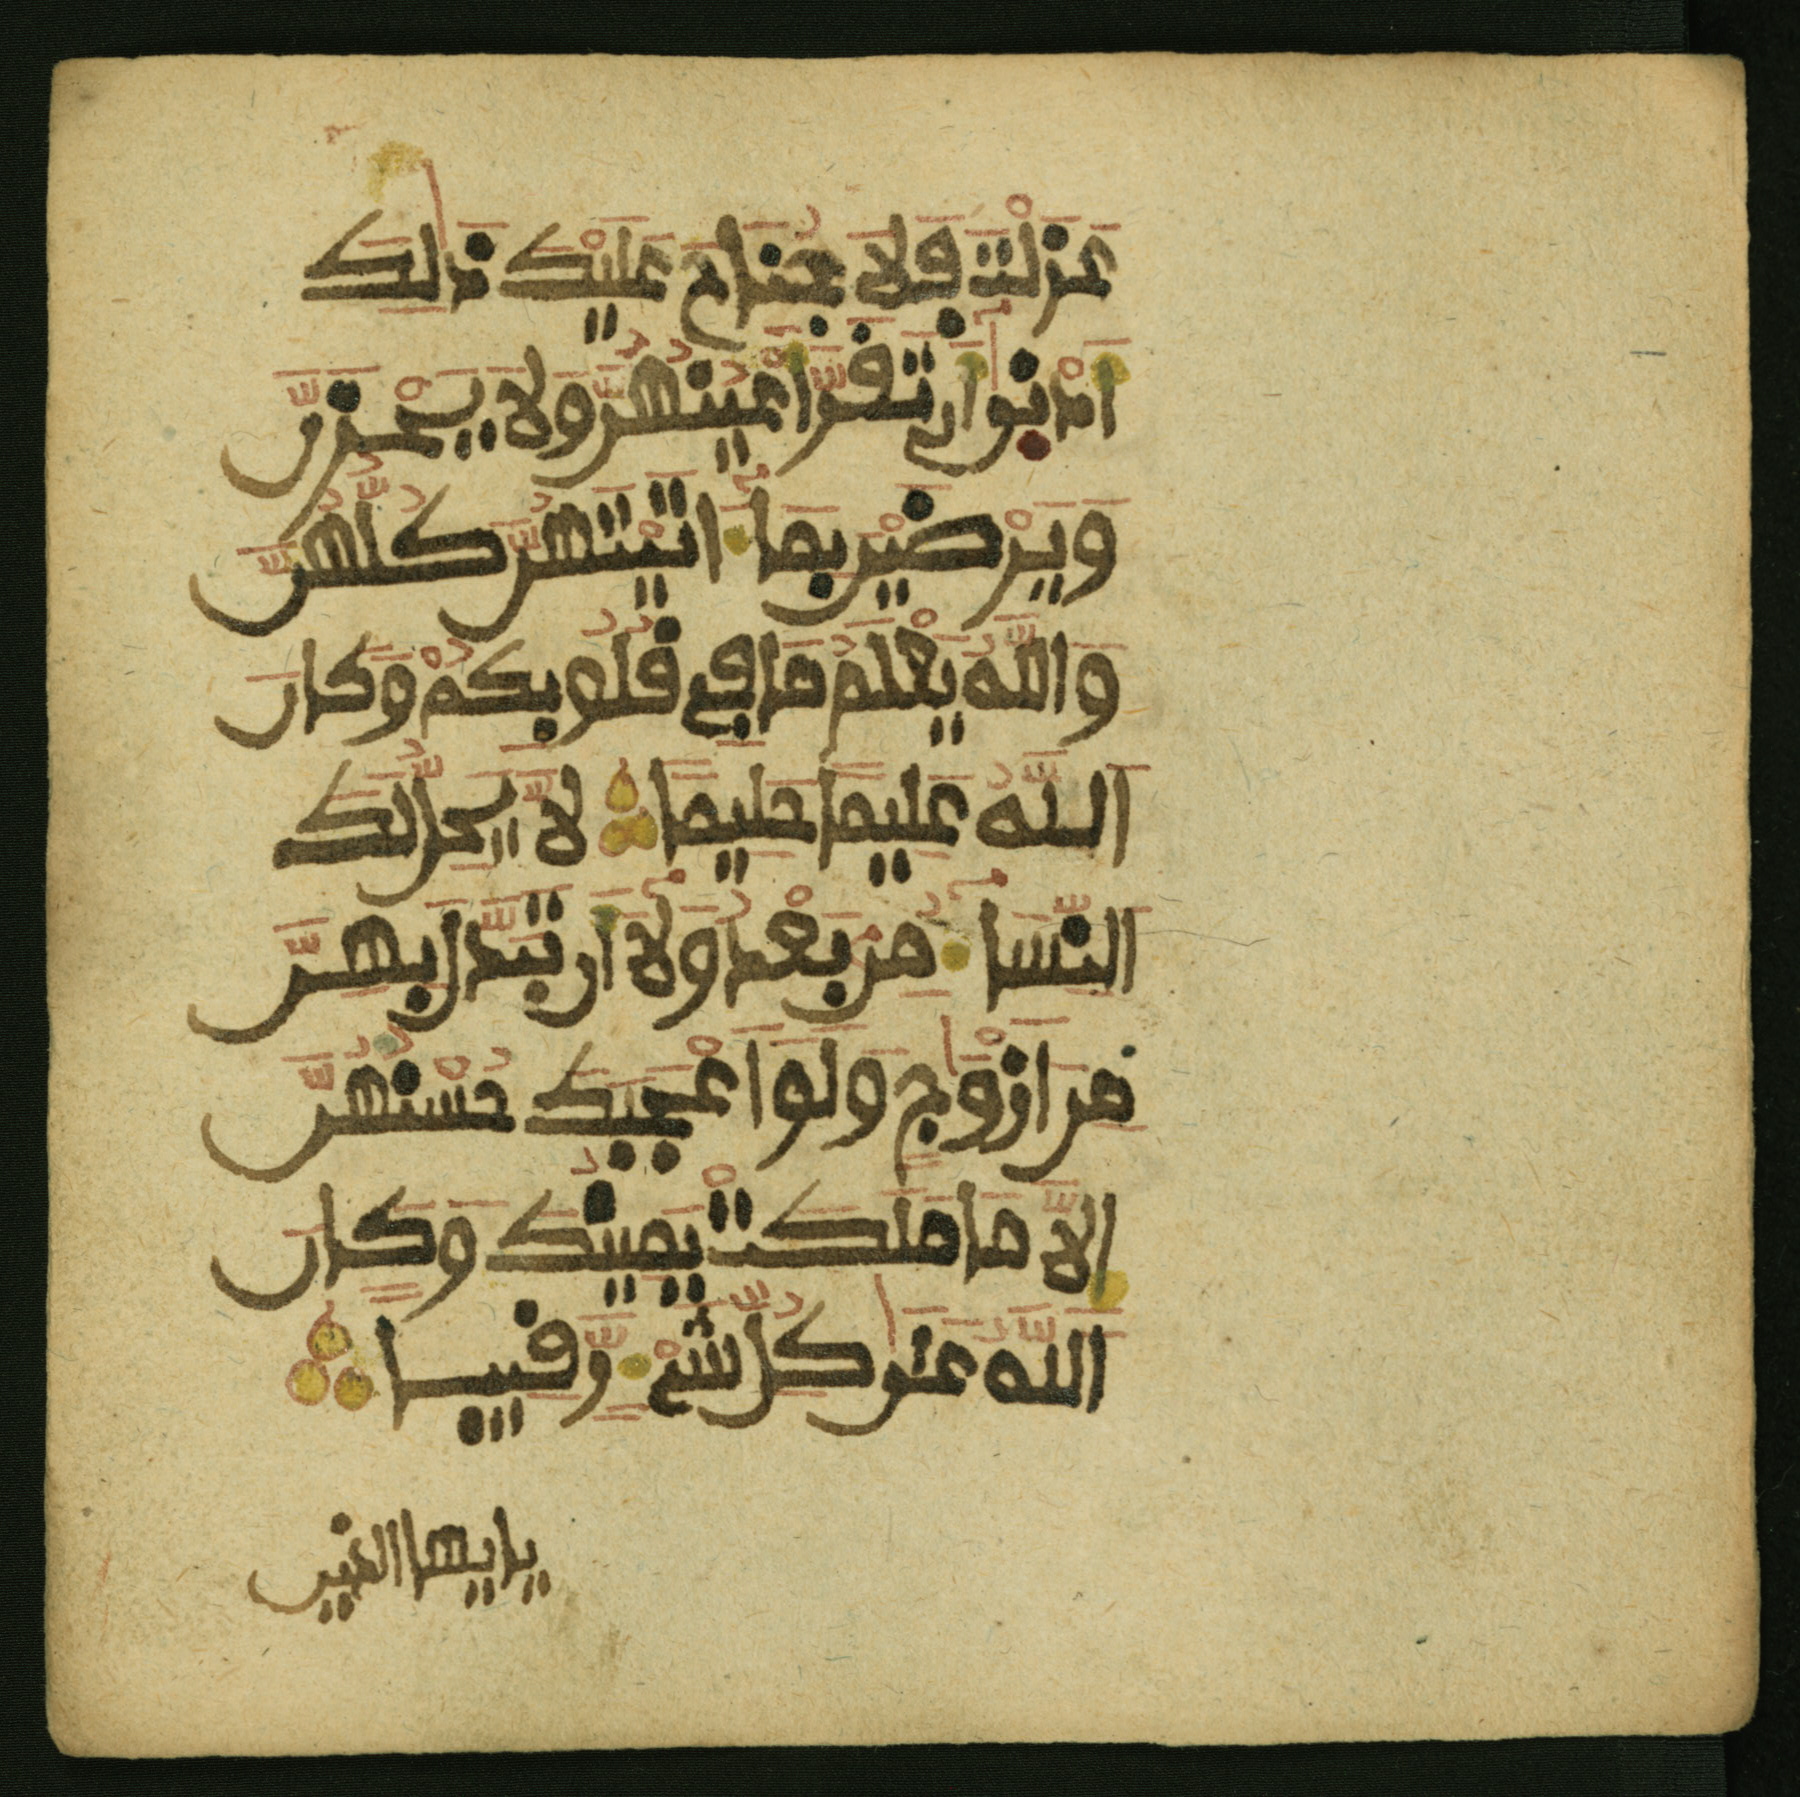 عَزَلْتَ فَلَا جُنَاحَ عَلَيْكَ ذَٰلِكَ
أَدْنَىٰ أَن تَقَرَّ أَعْيُنُهُنَّ وَلَا يَحْزَنَّ
وَيَرْضَيْنَ بِمَا ءَاتَيْتَهُنَّ كُلُّهُنَّ
وَاللَّهُ يَعْلَمُ مَا فِي قُلُوبِكُمْ وَكَانَ
اللَّهُ عَلِيمًا حَلِيمًا لَّا يَحِلُّ لَكَ
النِّسَاءُ مِن بَعْدُ وَلَا أَن تَبَدَّلَ بِهِنَّ
مِنْ أَزْوَٰجٍ وَلَوْ أَعْجَبَكَ حُسْنُهُنَّ
إِلَّا مَا مَلَكَتْ يَمِينُكَ وَكَانَ
اللَّهُ عَلَىٰ كُلِّ شَيْءٍ رَّقِيبًا
يايها الذين